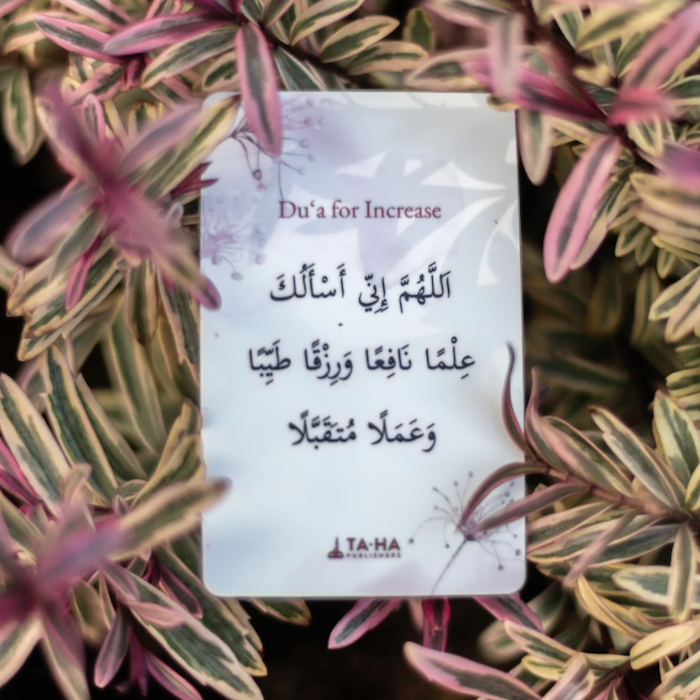 Du‘a for Increase
اَللَّهُمَّ إِنِّي أَسْأَلُكَ
عِلْمًا نَافِعًا وَرِزْقًا طَيِّبًا
وَعَمَلًا مُتَقَبَّلًا
TA-HA
PUBLISHERS